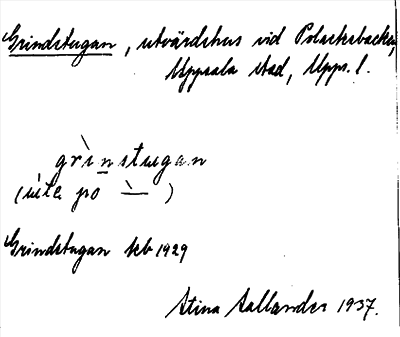 Grindstugan, utvärdshus vid Polacksbacken,
Uppsala stad, Upps. l.
grìnstugan
(ùte på ̀— )
Grindstugan tkb 1929
Stina Sallander 1937.